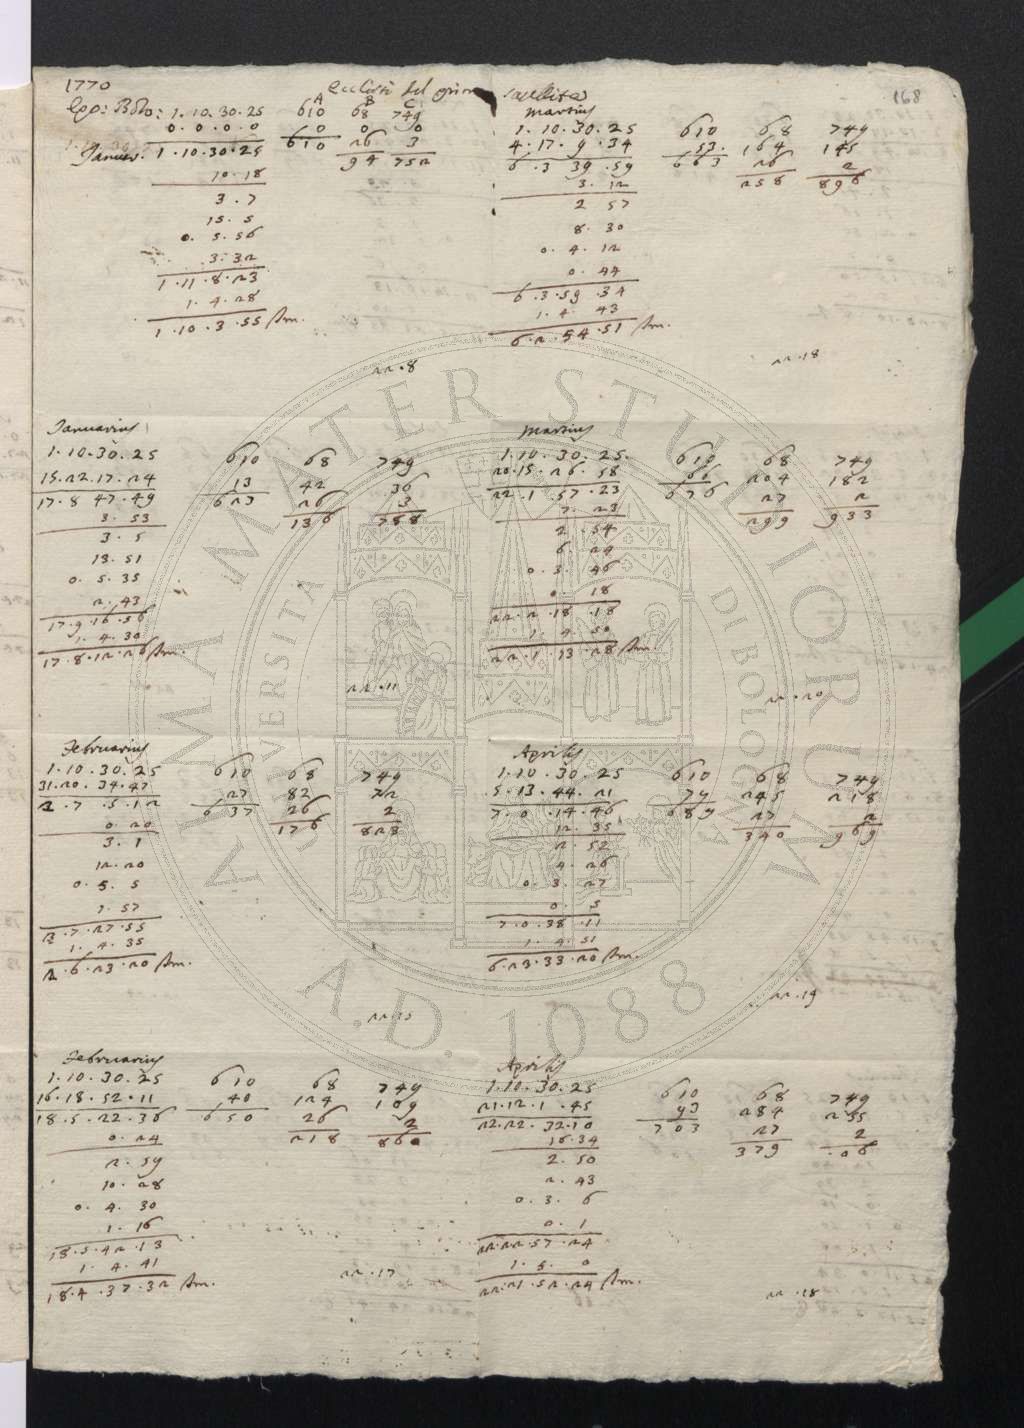 1770
Eclissi del primo satellite
168
A B C
Epo: Bon: 1. 10. 30. 25 610 68 749
0. 0. 0. 0 0 0 0
Januar. 1. 10. 30. 25 610 26 3
94 752
10. 18
3. 7
15. 5
0. 5. 56
3. 32
1. 11. 8. 23
1. 4. 28
1. 10. 3. 55
22. 8
Martius
1. 10. 30. 25 610 68 749
4. 17. 9. 34 53. 164 145
6. 3 39. 59 663 26 2
258 896
3. 12
2 57
8. 30
0. 4. 12
0. 44
6. 3. 59. 34
1. 4. 43
6. 2. 54. 51
22. 18
Januarius
1. 10. 30. 25 610 68 749
15. 22. 17. 24 13 42 36
17. 8 47. 49 623 26 3
136 788
3. 53
3. 5
13. 51
0. 5. 35
2. 43
17. 9. 16. 56
1. 4. 30
17. 8. 12. 26
22. 11
Martius
1. 10. 30. 25. 610 68 749
20. 15. 26. 58 66 204 182
22. 1. 57. 23 676 27 2
299 933
7. 23
2. 54
6. 24
0. 3. 46
0. 18
22. 2. 18. 18
1. 4. 50
22. 1. 13. 28
22. 20
Februarius
1. 10. 30. 25 610 68 749
31. 20. 34. 47 27 82 72
2. 7. 5. 12 637 26 2
176 823
0. 20
3. 1
12. 20
0. 5. 5
1. 57
2. 7. 27. 55
1. 4. 35
2. 6. 23. 20
22. 15
Aprilis
1. 10. 30. 25 610 68 749
5. 13. 44. 21 79 245 218
7. 0. 14. 46 689 27 2
340 969
12. 35
2. 52
4. 26
0. 3. 27
0. 5
7. 0. 38. 11
1. 4. 51
6. 23. 33. 20
22. 19
Februarius
1. 10. 30. 25 610 68 749
16. 18. 52. 11 40 124 109
18. 5. 22. 36 650 26 2
218 860
0. 24
2. 59
10. 28
0. 4. 30
1. 16
18. 5. 42. 13
1. 4. 41
18. 4. 37. 32
22. 17
Aprilis
1. 10. 30. 25 610 68 749
21. 12. 1. 45 93 284 255
22. 22. 32. 10 703 27 2
379 . 06
16. 34
2. 50
2. 43
0. 3. 6
0. 1
22. 22. 57. 24
1. 5. 0
22. 21. 52. 24
22. 18
ALMA MATER STUDIORUM
UNIVERSITÀ DI BOLOGNA
A.D. 1088